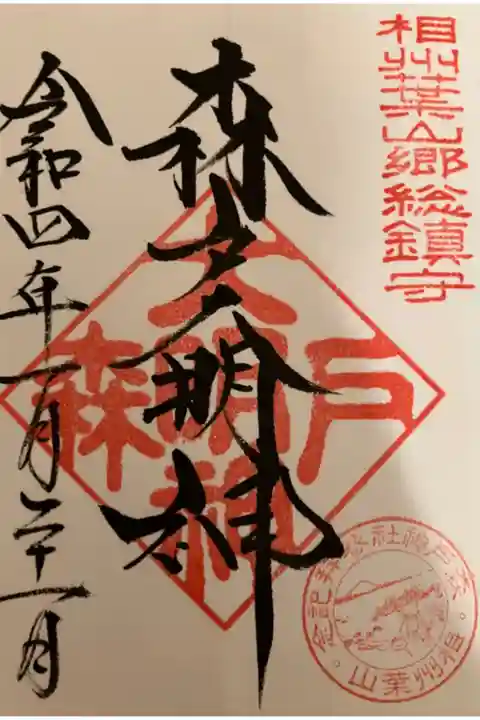 相州葉山郷総鎮守
森戸大明神
令和四年一月二十一日
森戸大明神
森戸神社参拝記念
相州葉山